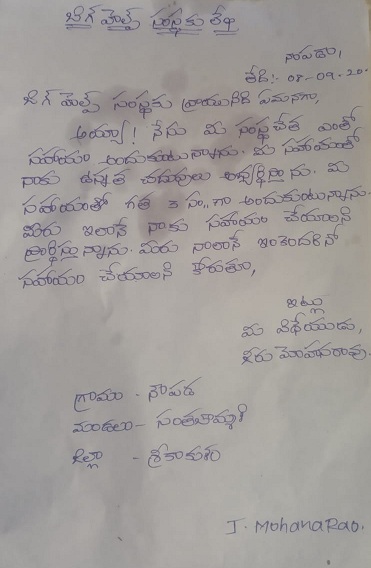 బిగ్ హెల్ప్ సంస్థకు లేఖ
నౌపడ,
తేది:- 08-09-20
బిగ్ హెల్ప్ సంస్థకు వ్రాయునది ఏమనగా,
అయ్యా! నేను మీ సంస్థ చేత ఎంతో
సహాయం అందుకుంటున్నాను. మీ సహాయంతో
నాకు ఉన్నత చదువులు
సహాయంతో గత 3 సం,, గా అందుకుంటున్నాను.
మీరు ఇలానే నాకు సహాయం చేయాలని
ప్రార్థిస్తున్నాను. మీరు నాలానే ఇంకెందరికో
సహాయం చేయాలని కోరుతూ,
ఇట్లు
మీ విధేయుడు,
మోహనరావు.
గ్రామం - నౌపడ
మండలం - సంతబొమ్మాళి
జిల్లా - శ్రీకాకుళం
I. MohanaRao.